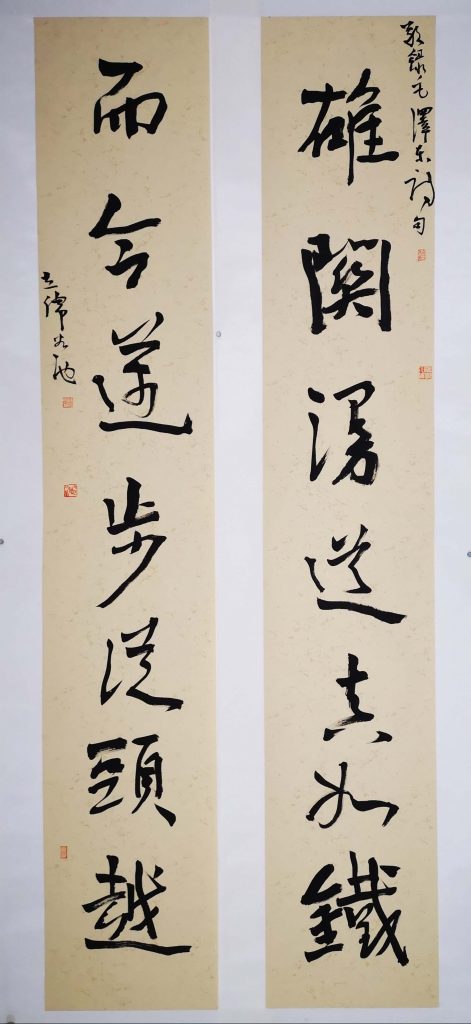 敬錄毛澤東詩句
雄關漫道真如鐵
而今邁步從頭越